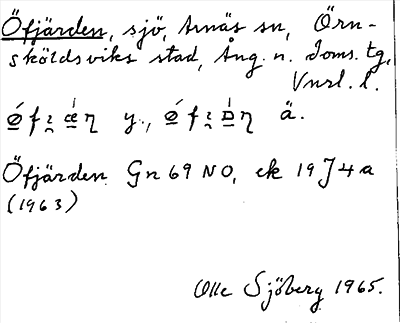 Öfjärden, sjö, Arnäs sn, Örn-
sköldsviks stad, Ång. n. Doms. tg,
Vnrl. l.
y., ä.
Öfjärden Gn 69 NO, ek 19J4a
(1963)
Olle Sjöberg 1965.